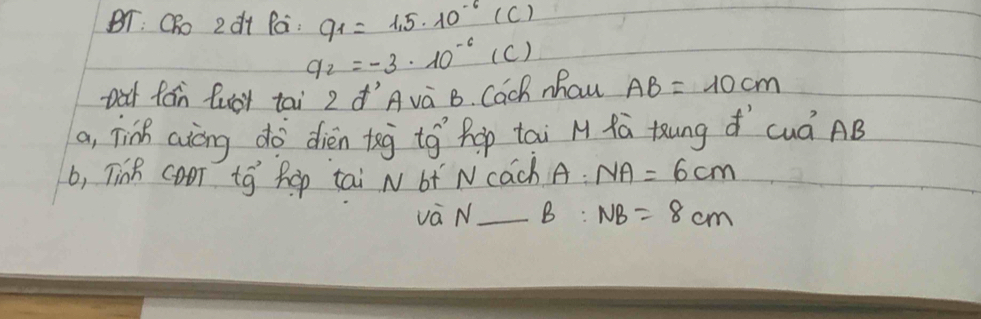 BT: Cho 2 đt là: q1 = 1,5 . 10⁻⁶ (C)
q2 = -3 . 10⁻⁶ (C)
Đặt lần lượt tại 2 đ' A và B. Cách nhau AB = 10 cm
a, Tính cường độ điện trg tg' hợp tại M là trung đ' của AB
b, Tính CĐĐT tg' hợp tại N bt N cách A : NA = 6 cm
và N — B : NB = 8 cm